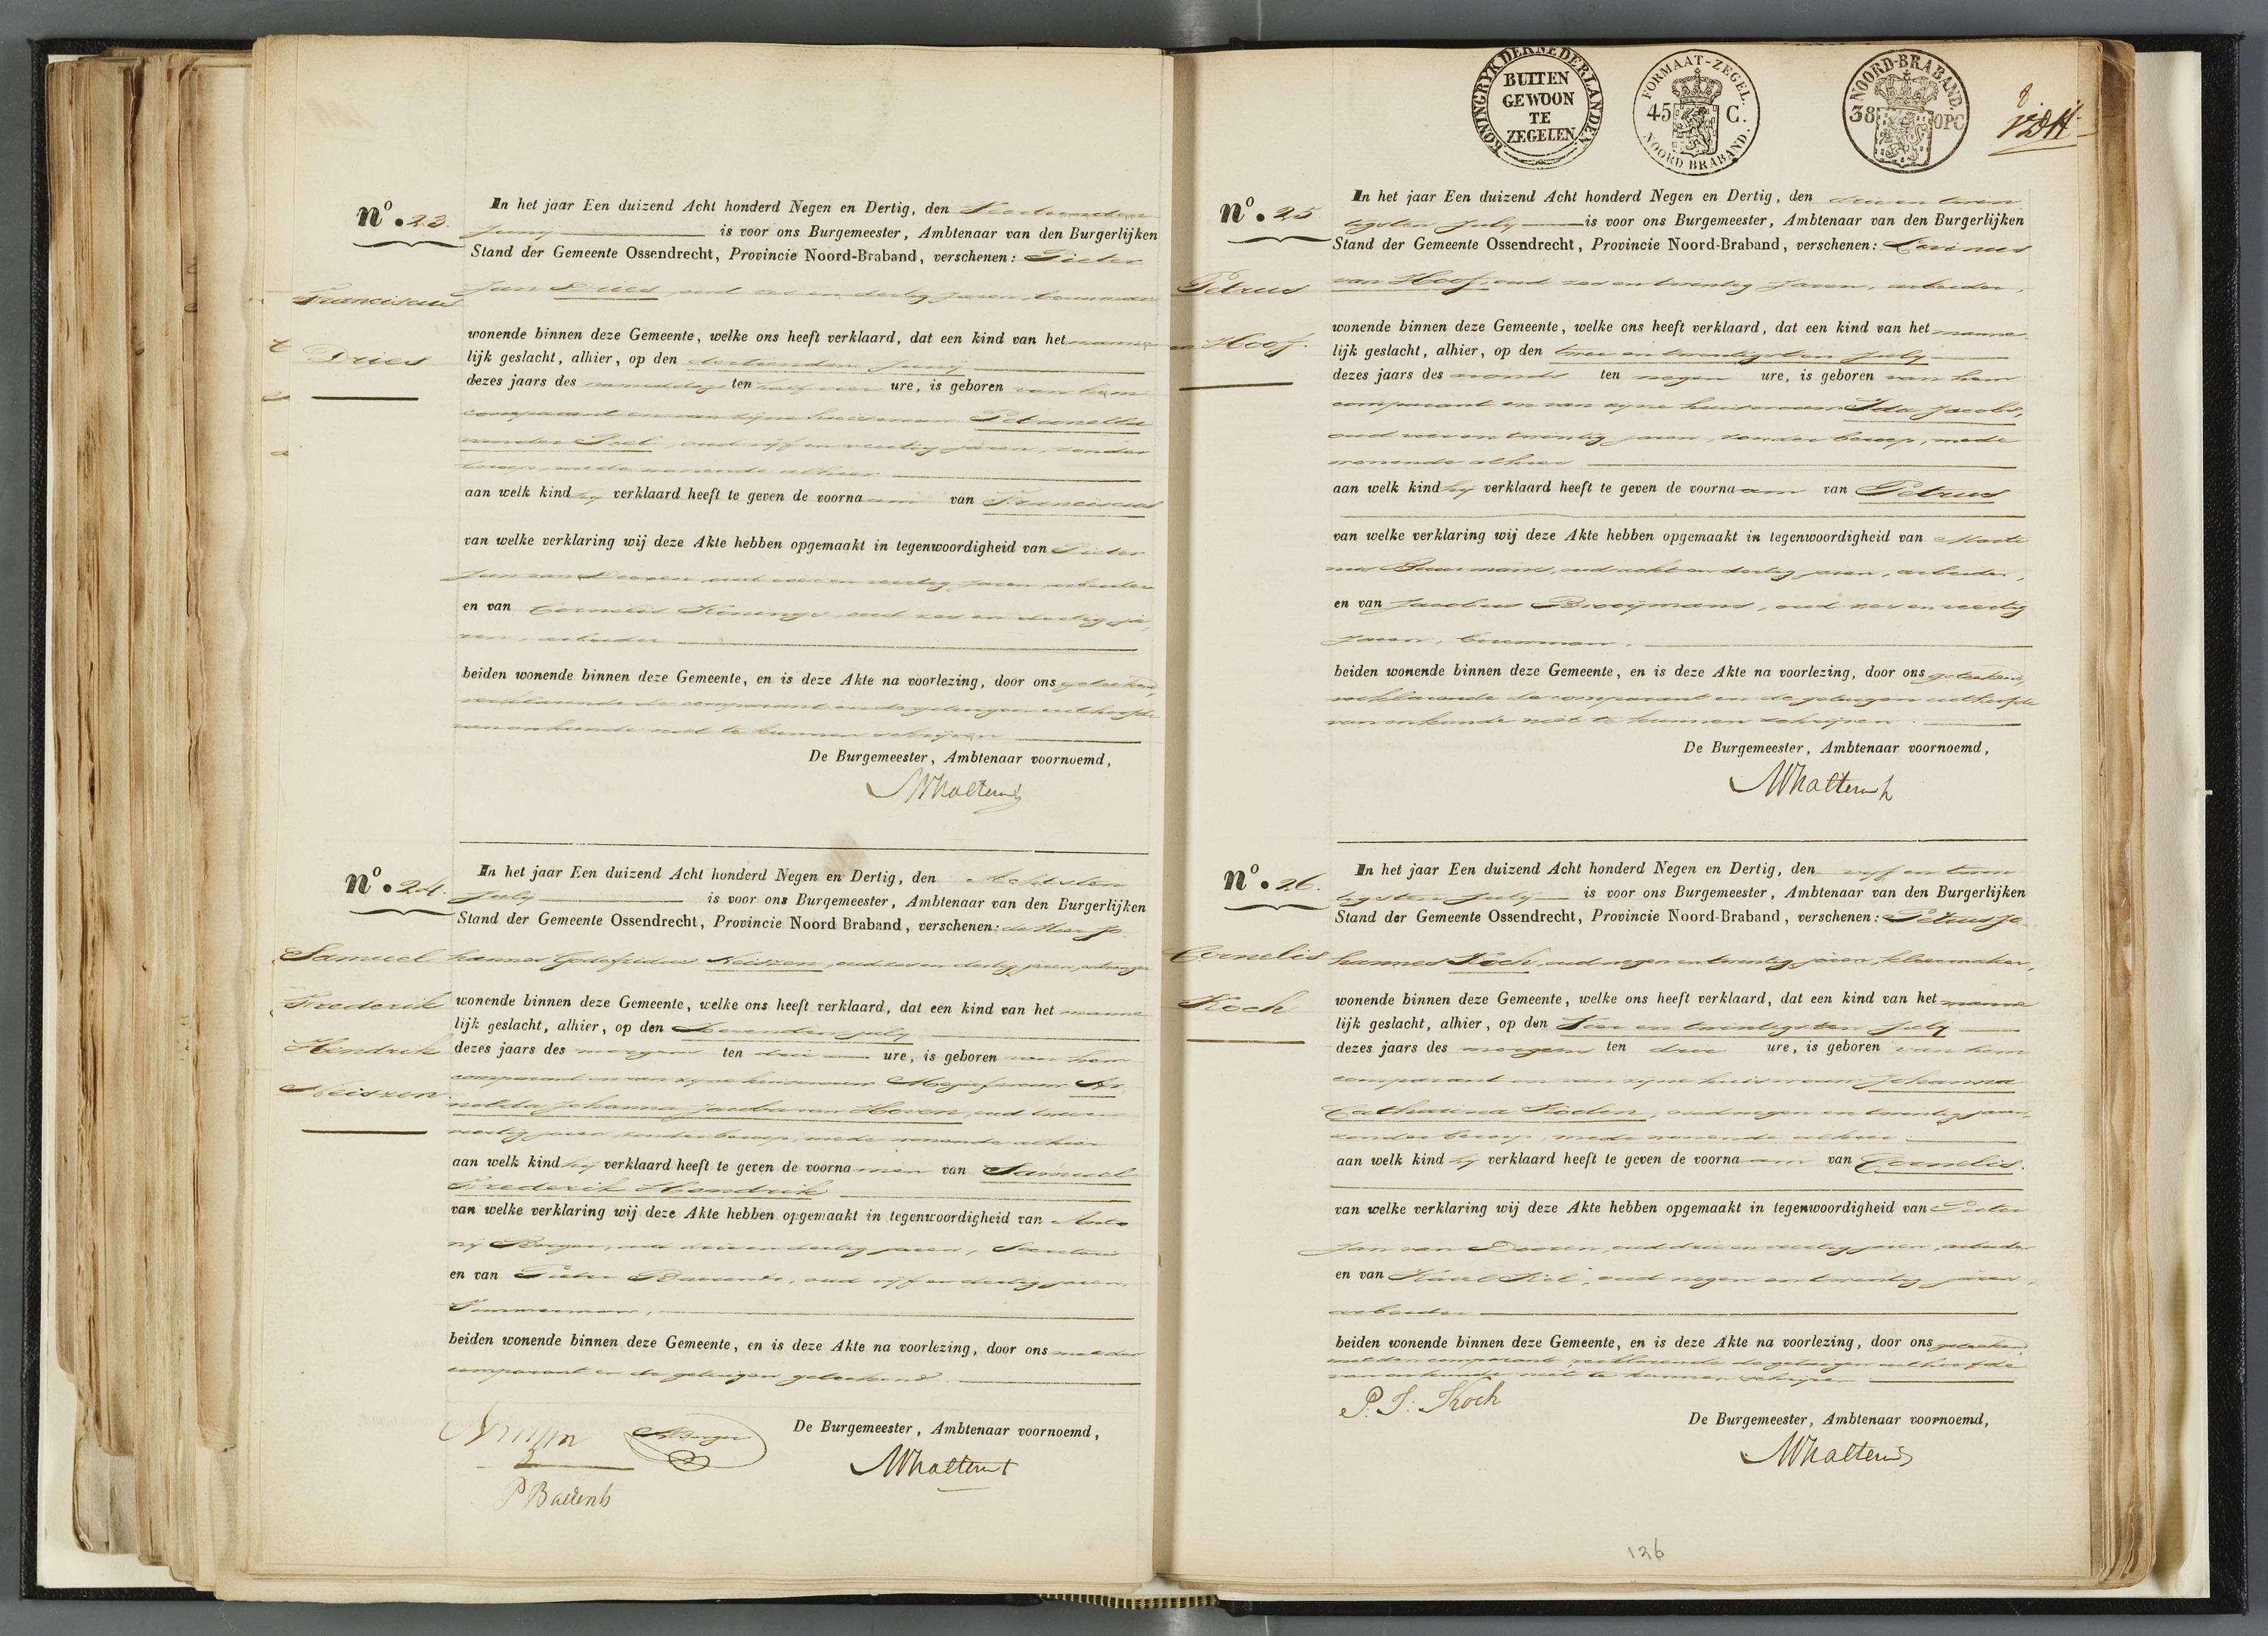 N.º 23.
Franciscus
Dries
In het jaar Een duizend Acht honderd Negen en Dertig, den
Juny is voor ons Burgemeester, Ambtenaar van den Burgerlijken
Stand der Gemeente Ossendrecht, Provincie Noord-Braband, verschenen: Pieter
Jan Dries, oud zes en dertig jaren, bouwman
wonende binnen deze Gemeente, welke ons heeft verklaard, dat een kind van het manne
lijk geslacht, alhier, op den dertienden Juny
dezes jaars des namiddags ten half vier ure, is geboren van hem
comparant en van zijne huisvrouw Petronella
van der Poel, oud vijf en veertig jaren, zonder
beroep, mede wonende alhier
aan welk kind hij verklaard heeft te geven de voornaam van Franciscus
van welke verklaring wij deze Akte hebben opgemaakt in tegenwoordigheid van Pieter
Jan van Dooren, oud en veertig jaren, arbeider
en van Cornelis Konings, oud zes en dertig ja-
ren, arbeider
beiden wonende binnen deze Gemeente, en is deze Akte na voorlezing, door ons geteekend,
verklarende de comparant en de getuigen uit hoofde
van onkunde niet te kunnen schrijven
De Burgemeester, Ambtenaar voornoemd,
N.º 24.
Samuel
Frederik
Hendrik
In het jaar Een duizend Acht honderd Negen en Dertig, den Achtsten
July is voor ons Burgemeester, Ambtenaar van den Burgerlijken
Stand der Gemeente Ossendrecht, Provincie Noord Braband, verschenen: de Heer Jo-
hannes Godefridus oud zes en dertig jaren, ontvanger
wonende binnen deze Gemeente, welke ons heeft verklaard, dat een kind van het manne
lijk geslacht, alhier, op den Zevenden July
dezes jaars des morgens ten drie ure, is geboren van hem
comparant en van zijne huisvrouw Mejufvrouw Ar-
nolda Johanna Jacoba van Hoven, oud
veertig jaren, zonder beroep, mede wonende alhier
aan welk kind hij verklaard heeft te geven de voornamen van Samuel
Frederik Hendrik
van welke verklaring wij deze Akte hebben opgemaakt in tegenwoordigheid van Anto
nij Borger, oud drie en dertig jaren, Secretaris
en van Pieter Baerents, oud vijf en dertig jaren,
Timmerman,
beiden wonende binnen deze Gemeente, en is deze Akte na voorlezing, door ons met den
comparant en de getuigen geteekend.
De Burgemeester, Ambtenaar voornoemd,
P Baerents
KONINGRYK DER NEDERLANDEN
BUITEN
GEWOON
TE
ZEGELEN
FORMAAT-ZEGEL.
45 C.
NOORD BRABAND.
NOORD-BRABAND.
38 OPC
N.º 25.
Petrus
van Hoof.
In het jaar Een duizend Acht honderd Negen en Dertig, den drie en twin
tigsten July is voor ons Burgemeester, Ambtenaar van den Burgerlijken
Stand der Gemeente Ossendrecht, Provincie Noord-Braband, verschenen:
van Hoof, oud zes en twintig jaren, arbeider,
wonende binnen deze Gemeente, welke ons heeft verklaard, dat een kind van het manne-
lijk geslacht, alhier, op den twee en twintigsten July
dezes jaars des avonds ten negen ure, is geboren van hem
comparant en van zijne huisvrouw Ida Jacobs,
oud vier en twintig jaren, zonder beroep, mede
wonende alhier
aan welk kind hij verklaard heeft te geven de voornaam van Petrus
van welke verklaring wij deze Akte hebben opgemaakt in tegenwoordigheid van Marti
nus Buurmans, oud acht en dertig jaren, arbeider,
en van Jacobus Brooijmans, oud zes en veertig
jaren, bouwman.
beiden wonende binnen deze Gemeente, en is deze Akte na voorlezing, door ons geteekend,
verklarende de comparant en de getuigen uit hoofde
van onkunde niet te kunnen schrijven.
De Burgemeester, Ambtenaar voornoemd,
N.º 26.
Cornelis
Koch
In het jaar Een duizend Acht honderd Negen en Dertig, den vijf en twin
tigsten July is voor ons Burgemeester, Ambtenaar van den Burgerlijken
Stand der Gemeente Ossendrecht, Provincie Noord-Braband, verschenen: Petrus Jo-
hannes Koch, oud negen en twintig jaren, kleermaker,
wonende binnen deze Gemeente, welke ons heeft verklaard, dat een kind van het manne
lijk geslacht, alhier, op den Vier en twintigsten July
dezes jaars des morgens ten drie ure, is geboren van hem
comparant en van zijne huisvrouw Johanna
Catharina oud negen en twintig jaren,
zonder beroep, mede wonende alhier
aan welk kind hij verklaard heeft te geven de voornaam van Cornelis.
van welke verklaring wij deze Akte hebben opgemaakt in tegenwoordigheid van Pieter
Jan van Dooren, oud drie en veertig jaren, arbeider
en van Karel oud negen en twintig jaren,
arbeider
beiden wonende binnen deze Gemeente, en is deze Akte na voorlezing, door ons geteekend
met den comparant, verklarende de getuigen uit hoofde
van onkunde niet te kunnen schrijven
P. J. Koch
De Burgemeester, Ambtenaar voornoemd,
126